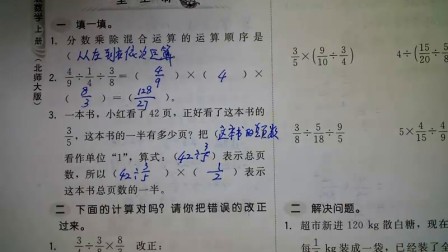 数学上册
（北师大版）
一 填一填。
1. 分数乘除混合运算的运算顺序是
（从左到右依次运算
2. 4/9÷1/4÷3/8＝（4/9）×（4）×
（8/3）＝（128/27）。
3. 一本书，小红看了42页，正好看了这本书的
3/5，这本书的一半有多少页？把（这本书的总页数
看作单位“1”，算式：（42÷3/5）表示总页
数，所以（42÷3/5）×（1/2）表示
这本书总页数的一半。
二 下面的计算对吗？请你把错误的改正
过来。
1. 3/5÷3/8×8/3 改正：
3/5×(9/10÷3/4)
4÷(15/20÷5/8
3/8÷5/18÷9/5
5×4/15÷4/9
二 解决问题。
1. 超市新进120 kg散白糖，现在
每1/2 kg装成一袋，已经装了全